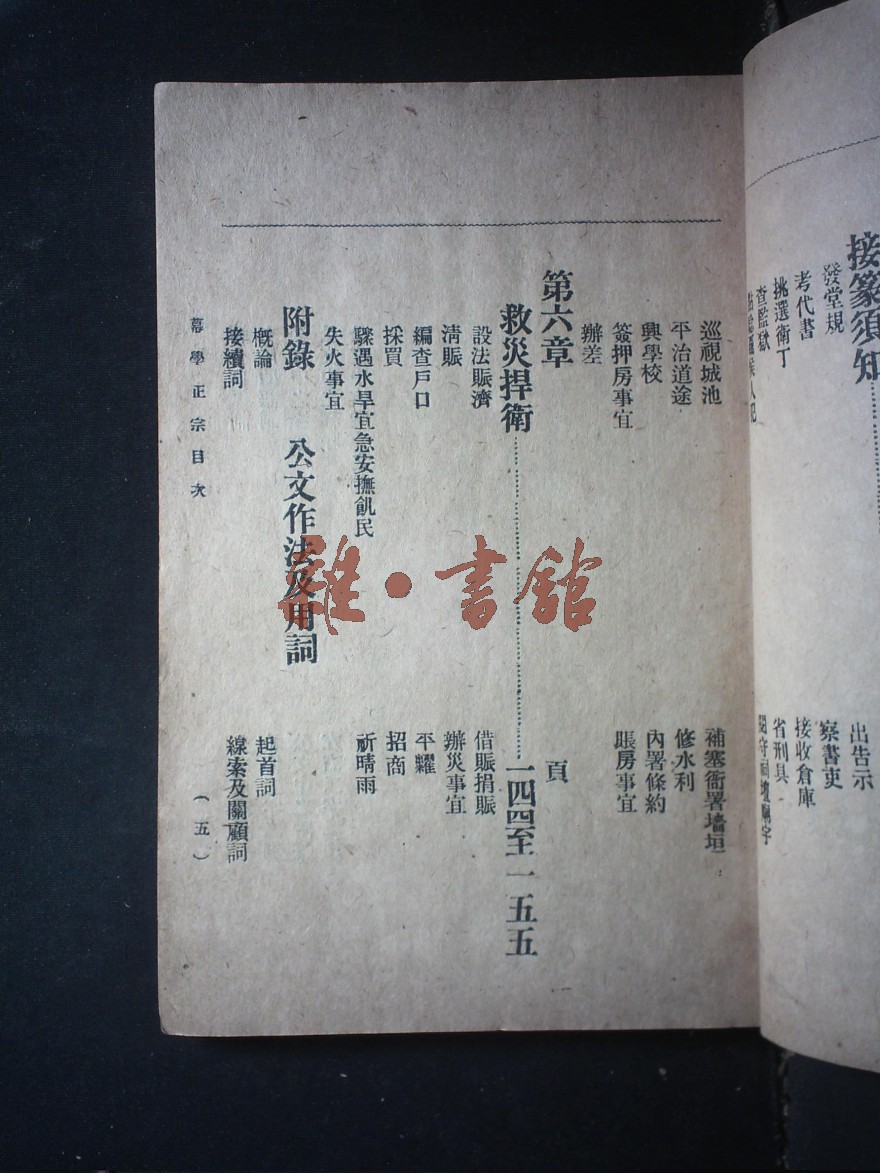 接篆須知
出告示
發堂規
察書吏
考代書
接收倉庫
挑選衛丁
省刑具
查監獄
巡視城池
補塞衙署墻垣
平治道途
修水利
興學校
內署條約
簽押房事宜
賬房事宜
辦差
第六章
頁
救災捍衛
一四四至一五五
設法賑濟
借賑捐賑
清賑
辦災事宜
編查戶口
平糶
採買
招商
驟遇水旱宜急安撫飢民
祈晴雨
失火事宜
附錄 公文作法及用詞
概論
起首詞
接續詞
線索及關顧詞
幕學正宗目次
(五)
雜·書館